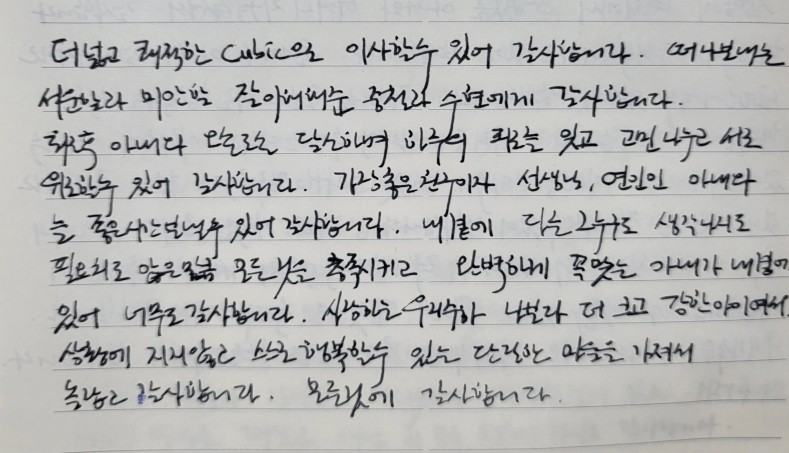 더 넓고 쾌적한 Cubic으로 이사할수 있어 감사합니다. 떠나보내는
서운함과 미안함 잘 이해해준 에게 감사합니다.
아내와 하며 하루의 피로를 잊고 고민 나누고 서로
위로할수 있어 감사합니다. 가장 좋은 친구이자 선생님, 연인인 아내와
늘 좋은 시간 보낼수 있어 감사합니다. 내 곁에 다른 그 누구도 생각나지도
필요치도 않은 모든 것을 충족시키고 완벽하게 꼭맞는 아내가 내 곁에
있어 너무도 감사합니다. 사랑하는 우리 나보다 더 크고 강한 아이여서
상황에 지지않고 스스로 행복할수 있는 단단한 마음을 가져서
놀랍고 감사합니다. 모든것에 감사합니다.